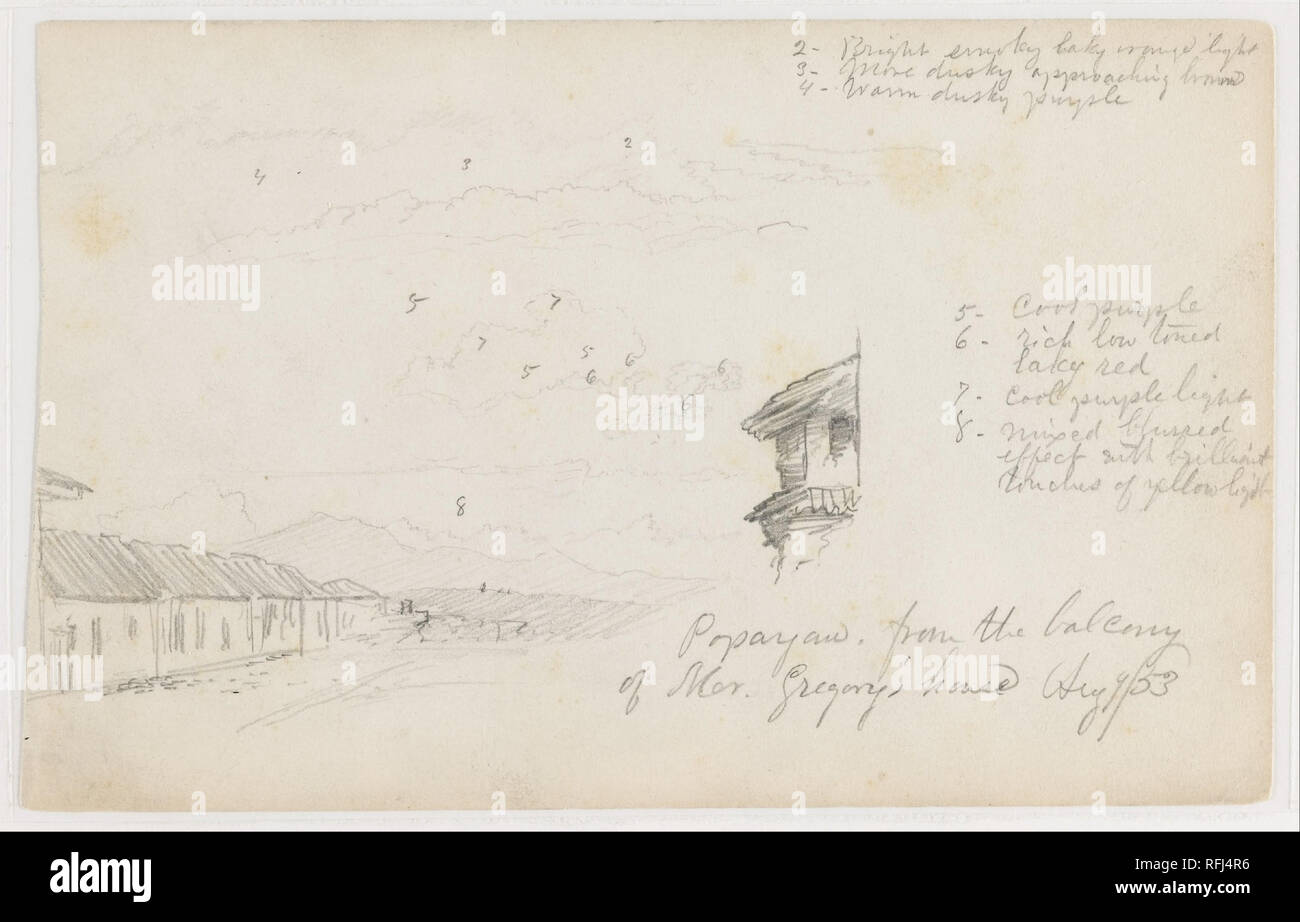 2- Bright smoky laky orange light
3- More dusky approaching brown
4- Warm dusky purple
4
3
2
5
7
7
5
6
5
6
6
6
8
5- Cool purple
6- rich low toned
laky red
7- Cool purple light
8- mixed blurred
effect with brilliant
touches of yellow light
Popayan. from the balcony
of Mr. Gregory's house Aug 53
alamy
alamy
alamy
a
alamy
Image ID: RFJ4R6
www.alamy.com
RFJ4R6